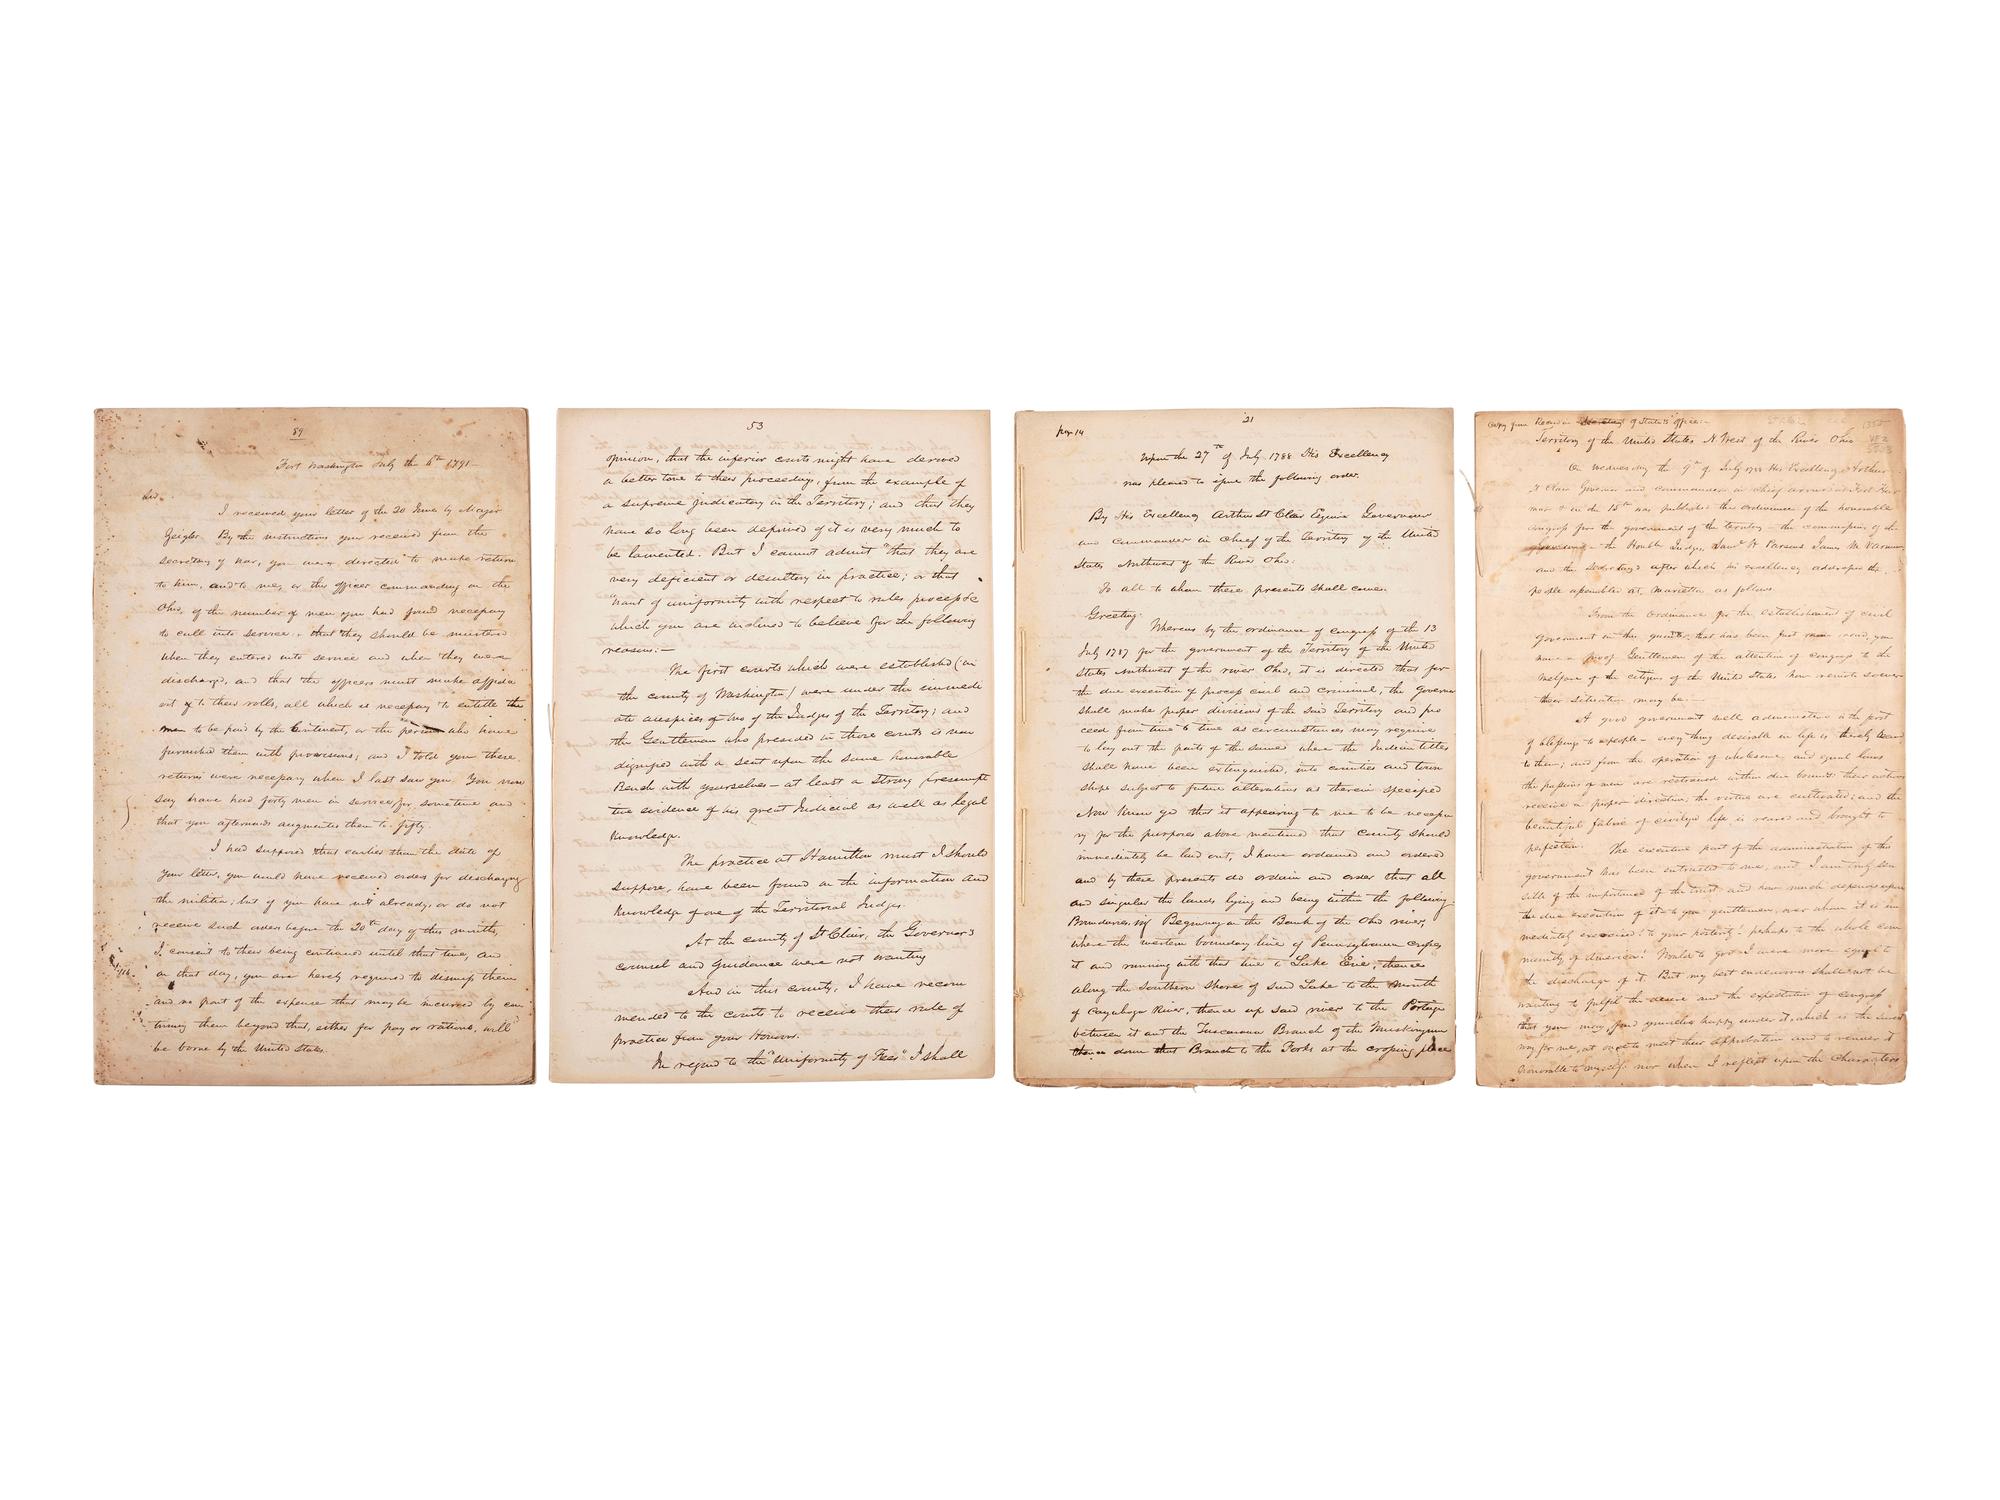 89
Fort Washington July the 6th 1791—
Sir.
I received your letter of the 20 June by Major
Zeigler. By the instructions you received from the
secretary of war, you were directed to make return
to him, and to me, or the officer commanding on the
Ohio, of the number of men you had found necessary
to call into service: that they should be mustered
when they entered into service and when they were
discharged, and that the officers must make affida
vit to their rolls, all which is necessary to entitle the
men to be paid by the Continent, or the person who have
furnished them with provisions; and I told you these
returns were necessary when I last saw you. You now
say have had forty men in service for sometime and
that you afterwards augmented them to fifty.
I had supposed that earlier than the date of
your letter, you would have received orders for discharging
the militia; but if you have not already, or do not
receive such orders before the 20th day of this month,
I consent to their being continued until that time, and
on that day, you are hereby required to dismiss them
and no part of the expense that may be incurred by con
tinuing them beyond that, either for pay or rations, will
be borne by the United States.
53
opinion, that the inferior courts might have derived
a better tone to their proceedings, from the example of
a supreme judicatory in the Territory; and that they
have so long been deprived of it is very much to
be lamented. But I cannot admit "that they are
very deficient or desultory in practice; or that
want of uniformity with respect to rules process &c
which you are inclined to believe for the following
reasons:—
The first courts which were established (in
the county of Washington) were under the immedi
ate auspices of two of the Judges of the Territory; and
the Gentleman who presided in those courts is now
dignified with a seat upon the same honorable
Bench with yourselves—at least a strong presump
tive evidence of his great Judicial as well as legal
knowledge.
The practice at Hamilton must I should
suppose, have been found on the information and
knowledge of one of the Territorial Judges.
At the county of St Clair, the Governor's
counsel and guidance were not wanting
And in this county, I have recom
mended to the courts to receive their rule of
practice from your Honors.
In regard to the "Uniformity of Fees" I shall
21
page 14
Upon the 27th of July 1788 His Excellency
was pleased to issue the following order.
By His Excellency Arthur St Clair Esquire Governour
and Commander in Chief of the Territory of the United
States Northwest of the River Ohio.
To all to whom these presents shall come.
Greeting.
Whereas by the ordinance of congress of the 13
July 1787 for the government of the Territory of the United
States Northwest of the river Ohio, it is directed that for
the due execution of process civil and criminal, the Governor
shall make proper divisions of the said Territory and pro
ceed from time to time as circumstances may require
to lay out the parts of the same where the Indian titles
shall have been extinguished, into counties and town
ships subject to future alterations as therein specified
Now know ye that it appearing to me to be necessa
ry for the purposes above mentioned that County should
immediately be laid out, I have ordained and ordered
and by these presents do ordain and order that all
and singular the lands lying and being within the following
Boundaries viz Beginning on the Bank of the Ohio river,
where the western boundary line of Pennsylvania crosses
it and running with that line to Lake Erie, thence
along the Southern Shore of said Lake to the mouth
of Cayahoga River, thence up said river to the Portage
between it and the Tuscarawa Branch of the Muskingum
thence down that Branch to the Forks at the crossing place
Copy from Record in Secretary of State's office:—
Territory of the United States N West of the River Ohio
1355
On Wednesday the 9th of July 1788 His Excellency Arthur
St Clair Governor and commander in chief arrived at Fort Har
mar & on the 15th was published the ordinance of the honourable
Congress for the government of the territory—the commissions of the
—the Honble Judges, Saml H Parsons James M Varnum
and the Secretary: after which his excellency addressed the
people assembled at Marietta as follows.
From the Ordinance for the establishment of civil
Government in this quarter, that has been just now read, you
have a proof Gentlemen of the attention of Congress to the
welfare of the citizens of the United States how remote soever
their situation may be.—
A good government well administered is the first
of blessings to a people—every thing desirable in life is thereby secured
to them; and from the operation of wholesome, and equal laws
the passions of men are restrained within due bounds: their actions
receive a proper direction; the virtues are cultivated; and the
beautiful fabric of civilized life is reared and brought to
perfection. The executive part of the administration of this
government has been entrusted to me, and I am truly sen
sible of the importance of the trust and how much depends upon
the due execution of it—to you gentlemen, over whom it is im
mediately exercised: to your posterity! perhaps to the whole com
munity of America! Would to god I were more equal to
the discharge of it. But my best endeavors shall not be
wanting to fulfil the desire and the expectation of congress
that you may find yourselves happy under it, which is the surest
way for me, at once to meet their approbation and to render it
honorable to myself: nor when I reflect upon the characters